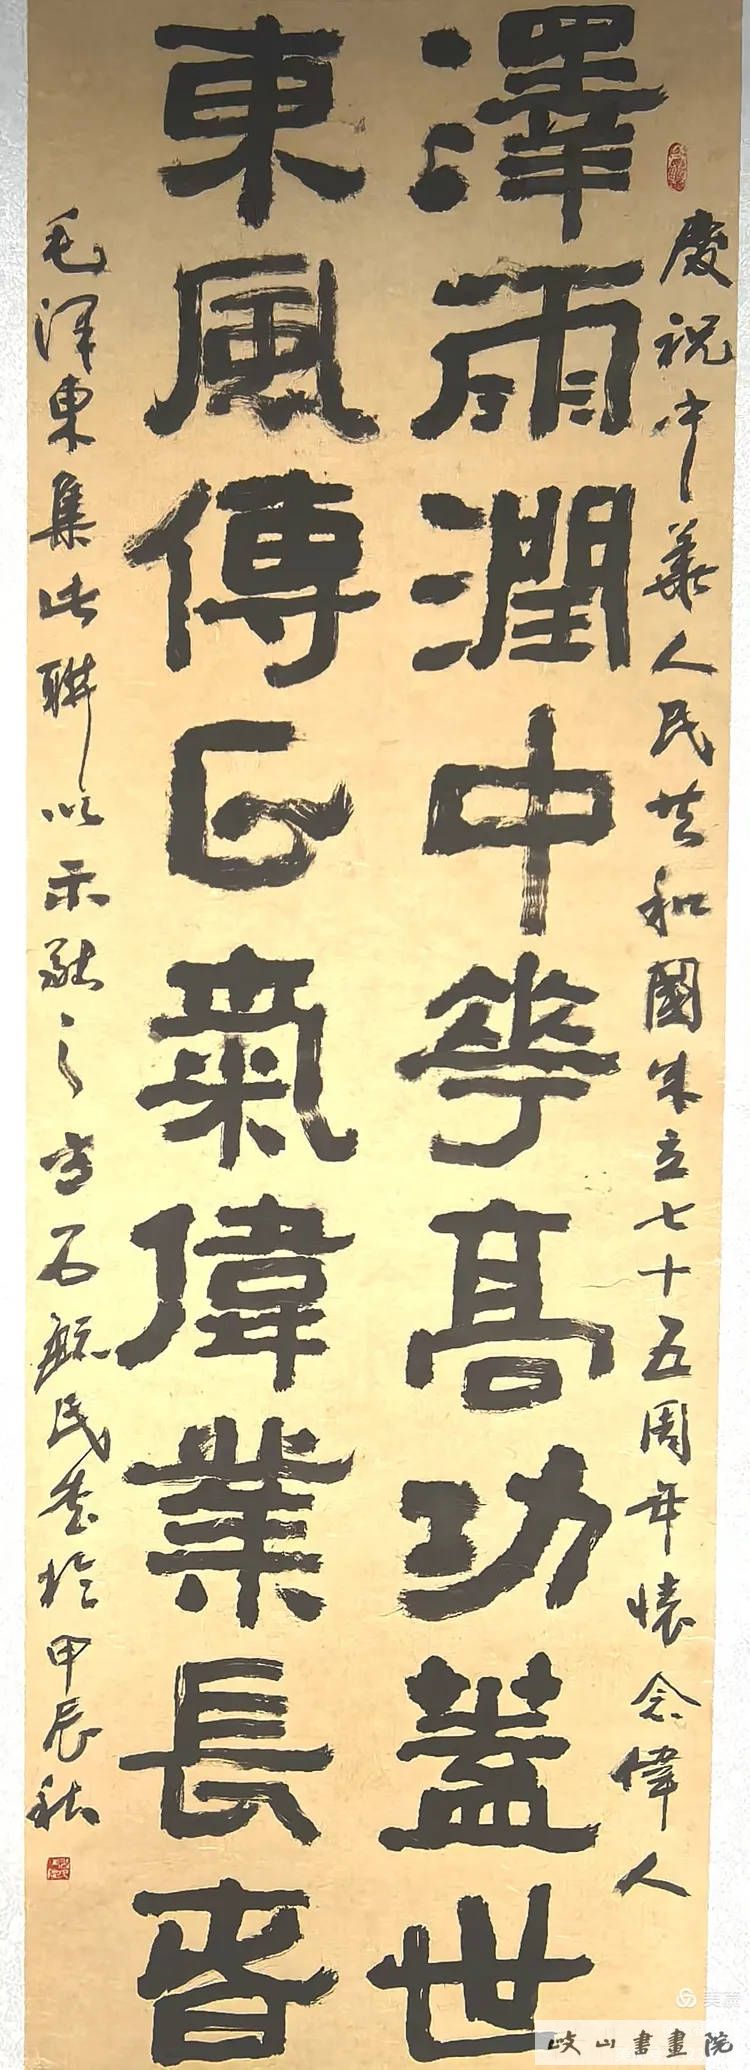 慶祝中華人民共和國成立七十五周年懷念偉人
澤雨潤中華高功蓋世
東風傳正氣偉業長春
毛澤東集此聯以示 之 石 民書於甲辰秋
美篇
岐山書畫院